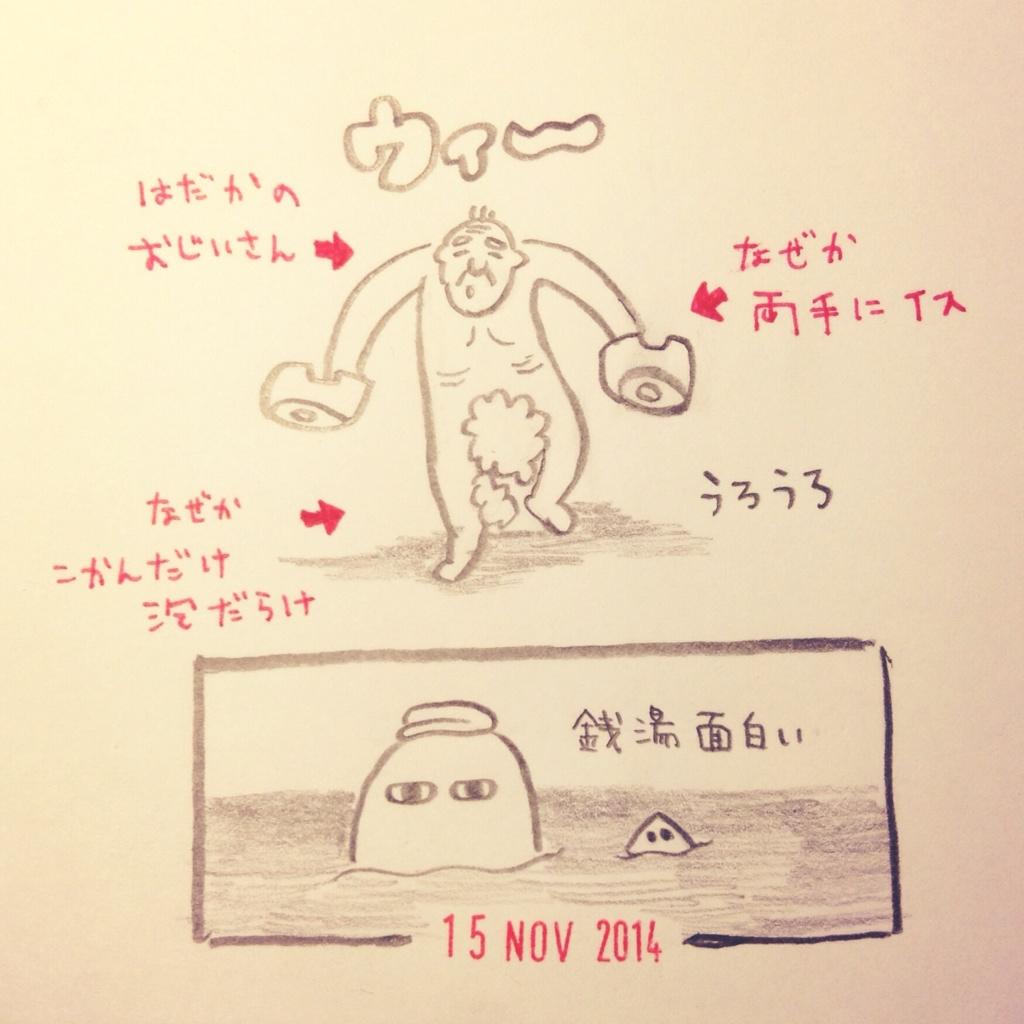 ウィー
はだかの
おじいさん
なぜか
両手にイス
うろうろ
なぜか
こかんだけ
泡だらけ
銭湯面白い
15 NOV 2014